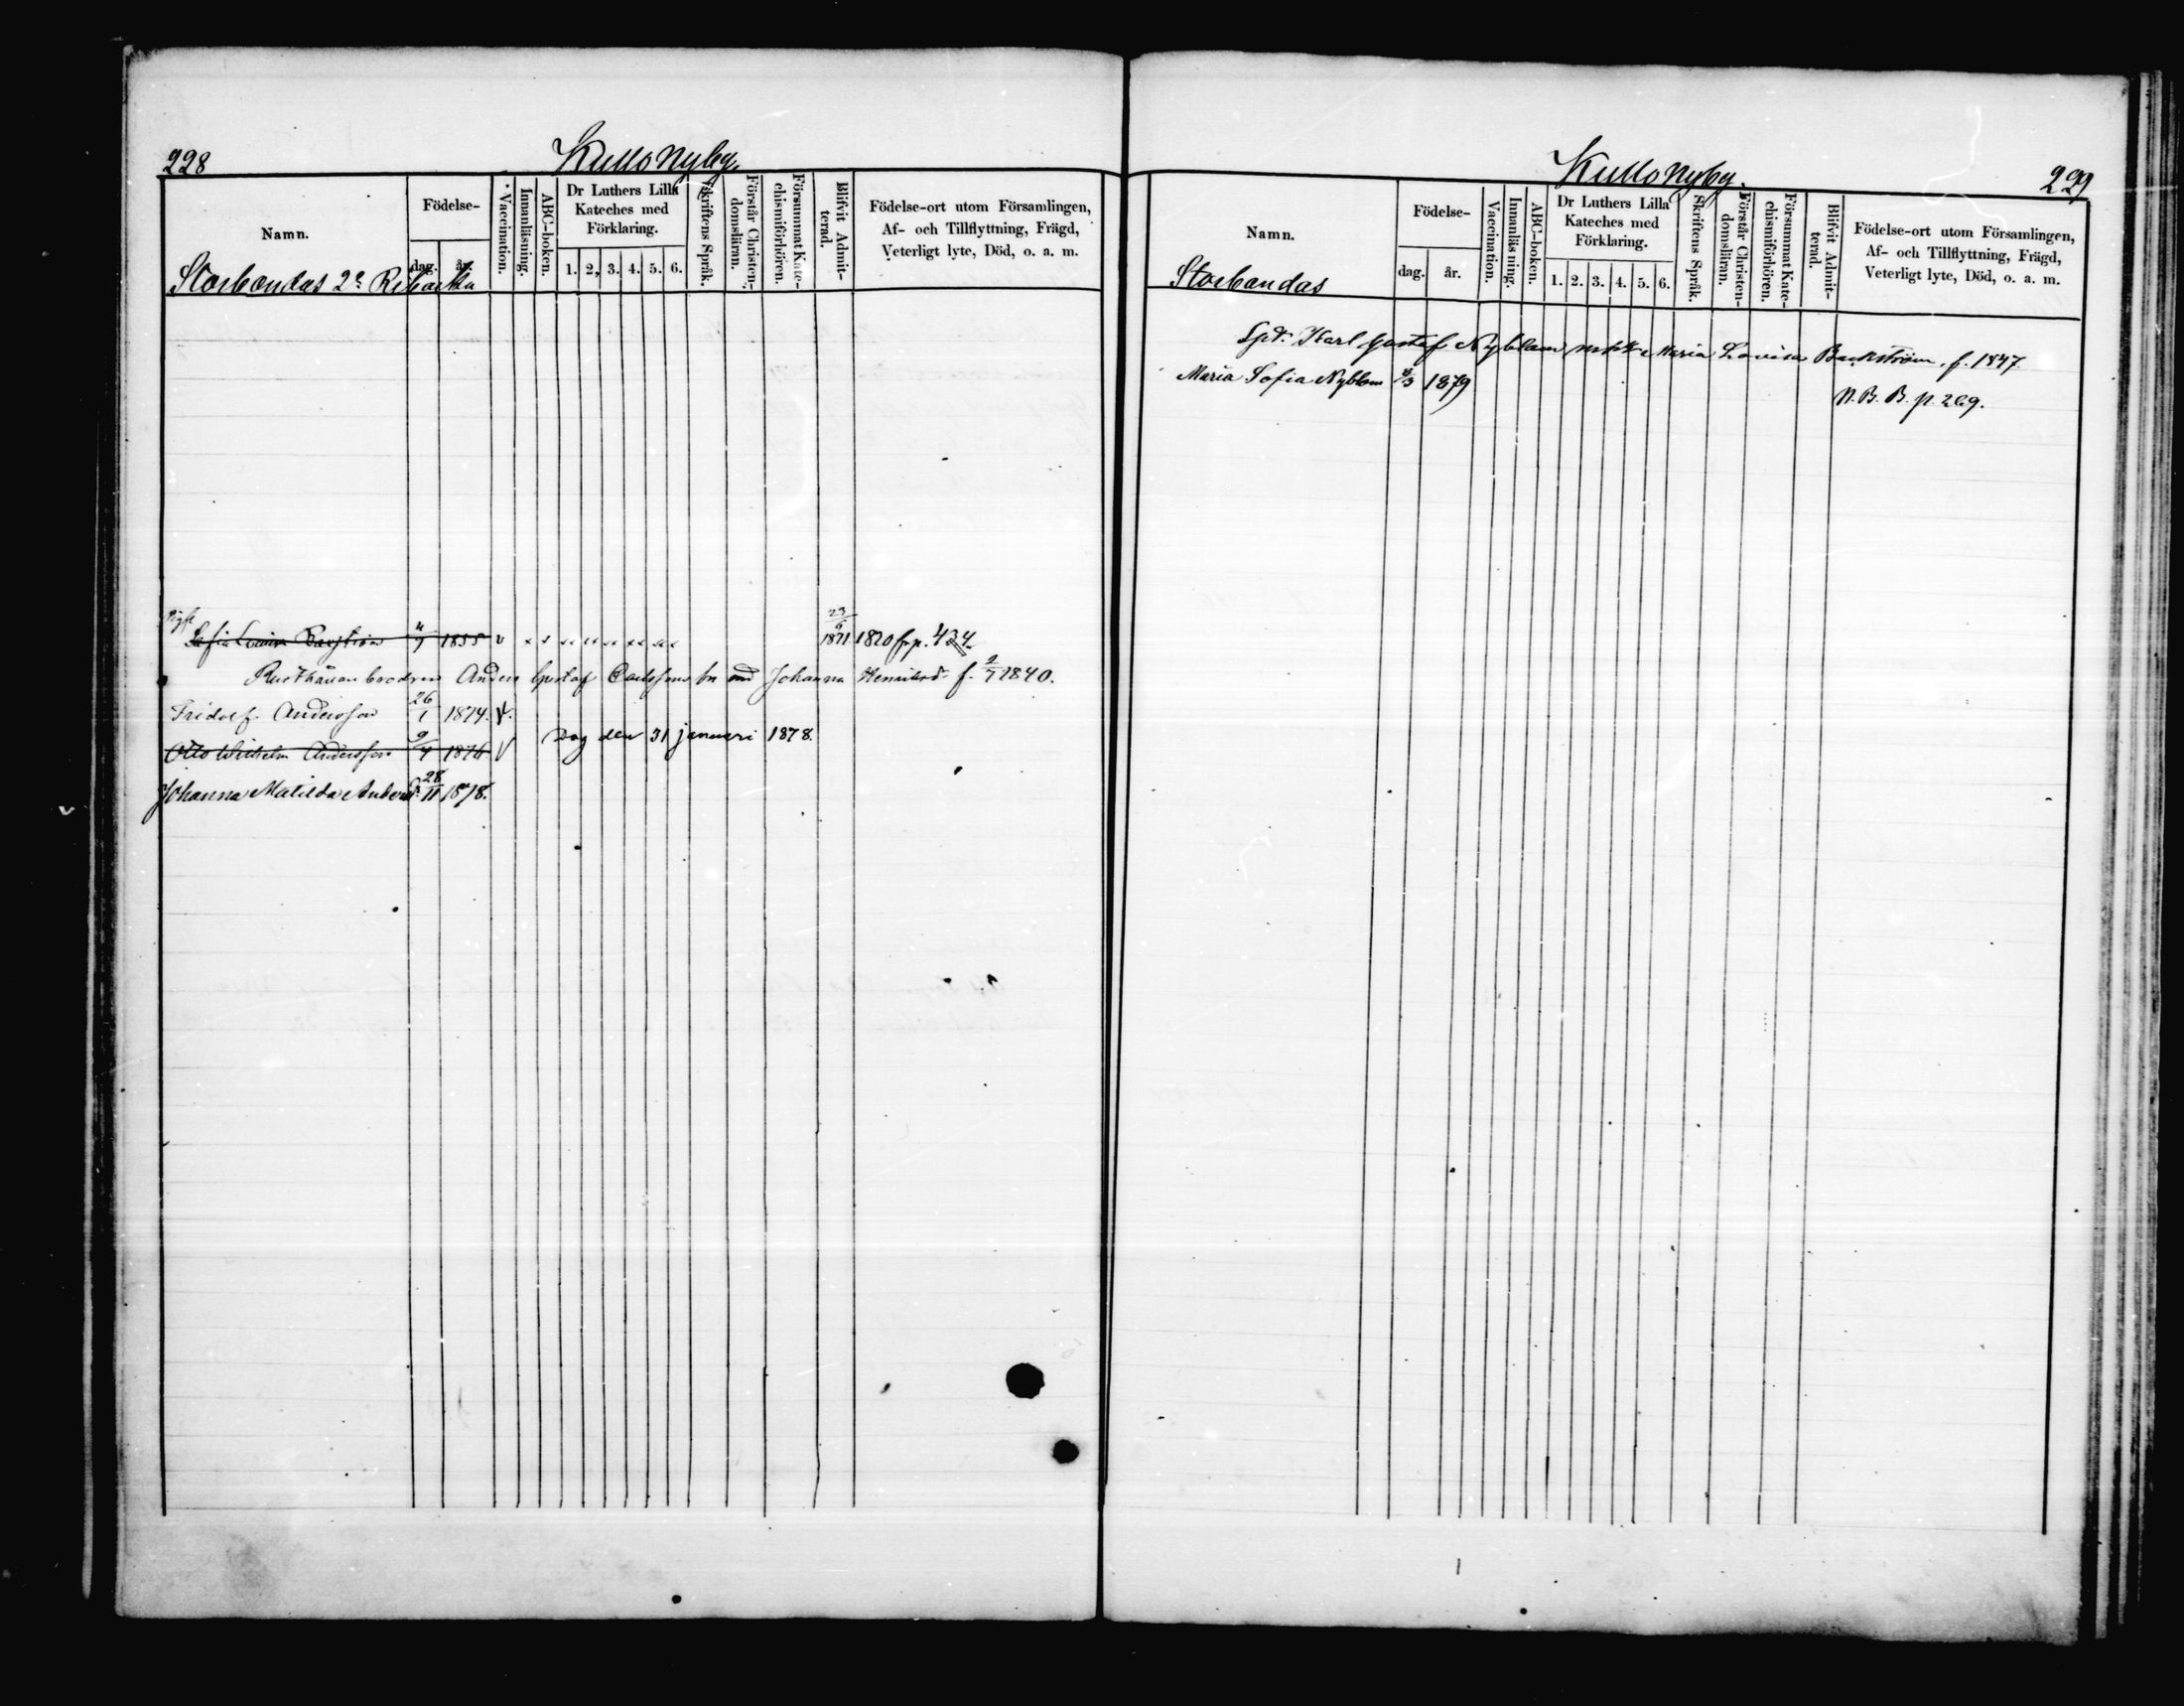 228
Kullo Nyby.
Namn.
Födelse-
dag. år.
Vaccination.
Innanläsning.
ABC-boken.
Dr Luthers Lilla
Kateches med
Förklaring.
1. 2. 3. 4. 5. 6.
Skriftens Språk.
Förstår Christen-
domsläran.
Försummat Kate-
chismiförhören.
Blifvit Admit-
terad.
Födelse-ort utom Församlingen,
Af- och Tillflyttning, Frägd,
Veterligt lyte, Död, o. a. m.
Storbondas 2
Piga
Sofia Lovisa 1855 v 23/6 1871 1870 fr p. 434
Rusthållar brodren Anders Gustaf Carlssons bn md Johanna Henriksdr f. 2/7 1840.
Fridolf Andersson 26/1 1874. v.
Otto Wilhelm Andersson 9/4 1876 v Dog den 31 januari 1878.
Johanna Matilda Andersdr 28/11 1878.
Kullo Nyby.
229
Namn.
Födelse-
dag. år.
Vaccination.
Innanläsning.
ABC-boken.
Dr Luthers Lilla
Kateches med
Förklaring.
1. 2. 3. 4. 5. 6.
Skriftens Språk.
Förstår Christen-
domsläran.
Försummat Kate-
chismiförhören.
Blifvit Admit-
terad.
Födelse-ort utom Församlingen,
Af- och Tillflyttning, Frägd,
Veterligt lyte, Död, o. a. m.
Storbondas
Karl Gustaf Nyblom Maria Lovisa Backström, f. 1847.
Maria Sofia Nyblom 1879
N. B. B. p. 269.